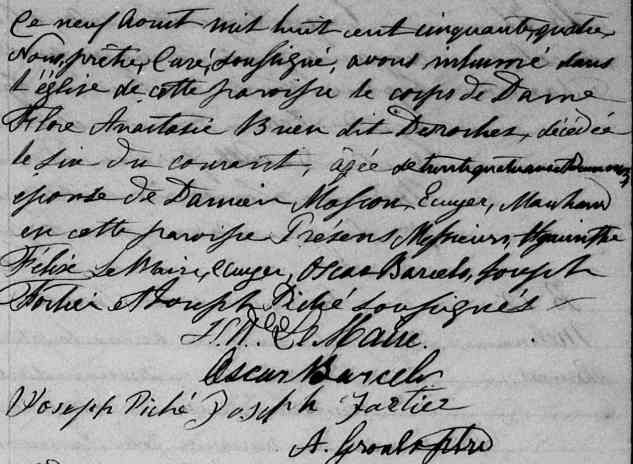 Le neuf Aout mil huit cent cinquante, quatre,
Nous, prêtre, Curé, soussigné, avons inhumé dans
l'église de cette paroisse le corps de Dame
Flore Anastasie Brien dit Deroches, décédée
le six du courant, âgée de trente quatre ans
epouse de Damien Masson, Ecuyer, Marchand
en cette paroisse Présens Messieurs, Hyacinthe
Félix LeMaire, Ecuyer, Oscar Barcelo, Joseph
Fortier et Joseph Piché soussignés
LeMaire.
Oscar Barcelo
Joseph Piché Joseph Fortier
A. Groulx Ptre